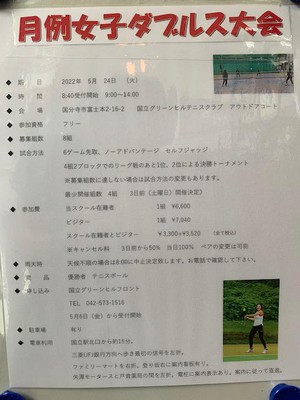 月例女子ダブルス大会
◆ 期 日 2022年 5月 24日 (火)
◆ 時 間 8:40受付開始 9:00~14:00
◆ 会 場 国分寺市富士本2-16-2 国立グリーンヒルテニスクラブ アウトドアコート
◆ 参加資格 フリー
◆ 募集組数 8組
◆ 試合方法 6ゲーム先取、ノーアドバンテージ セルフジャッジ
4組2ブロックでのリーグ戦のあと1位、2位による決勝トーナメント
※募集組数に達しない場合は試合方法の変更もあります。
最少開催組数 4組 3日前(土曜日)開催決定)
◆ 参加費 当スクール在籍者 1組 ¥6,600
ビジター 1組 ¥7,040
スクール在籍者とビジター ¥3,300+¥3,520 (全て税込)
※キャンセル料 3日前から50% 当日100% ペアの変更は可能
◆ 雨天時 天候不順の場合は8:00に中止決定致します。お電話で確認して下さい。
◆ 賞 品 優勝者 テニスボール
◆ 申し込み 国立グリーンヒルフロント
TEL 042-573-1516
5月6日(金)から受付開始
◆ 駐車場 有り
◆ 電車利用 国立駅北口から約15分。
三菱UFJ銀行方向へ歩き最初の信号を左折。
ファミリーマートを当折、登り坂右に案内看板有り。